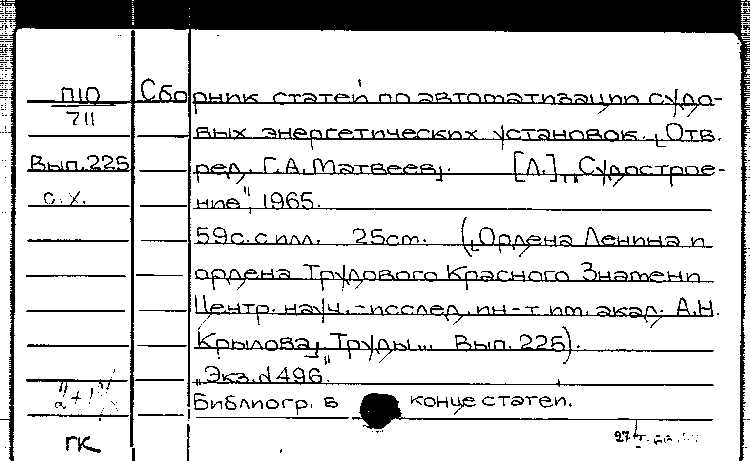 П10 Сборник статей по автоматизации судо-
711
вых энергетических установок. [Отв.
Вып.225 ред. Г.А.Матвеев]. [Л.] „Судострое-
с.х. ние", 1965.
59с.с илл. 25см. ([Ордена Ленина и
ордена Трудового Красного Знамени
Центр. науч.-исслед. ин-т им. акад. А.Н.
Крылова]. Труды... Вып. 225).
"Экз.№496"
Библиогр. в конце статей.
ГК